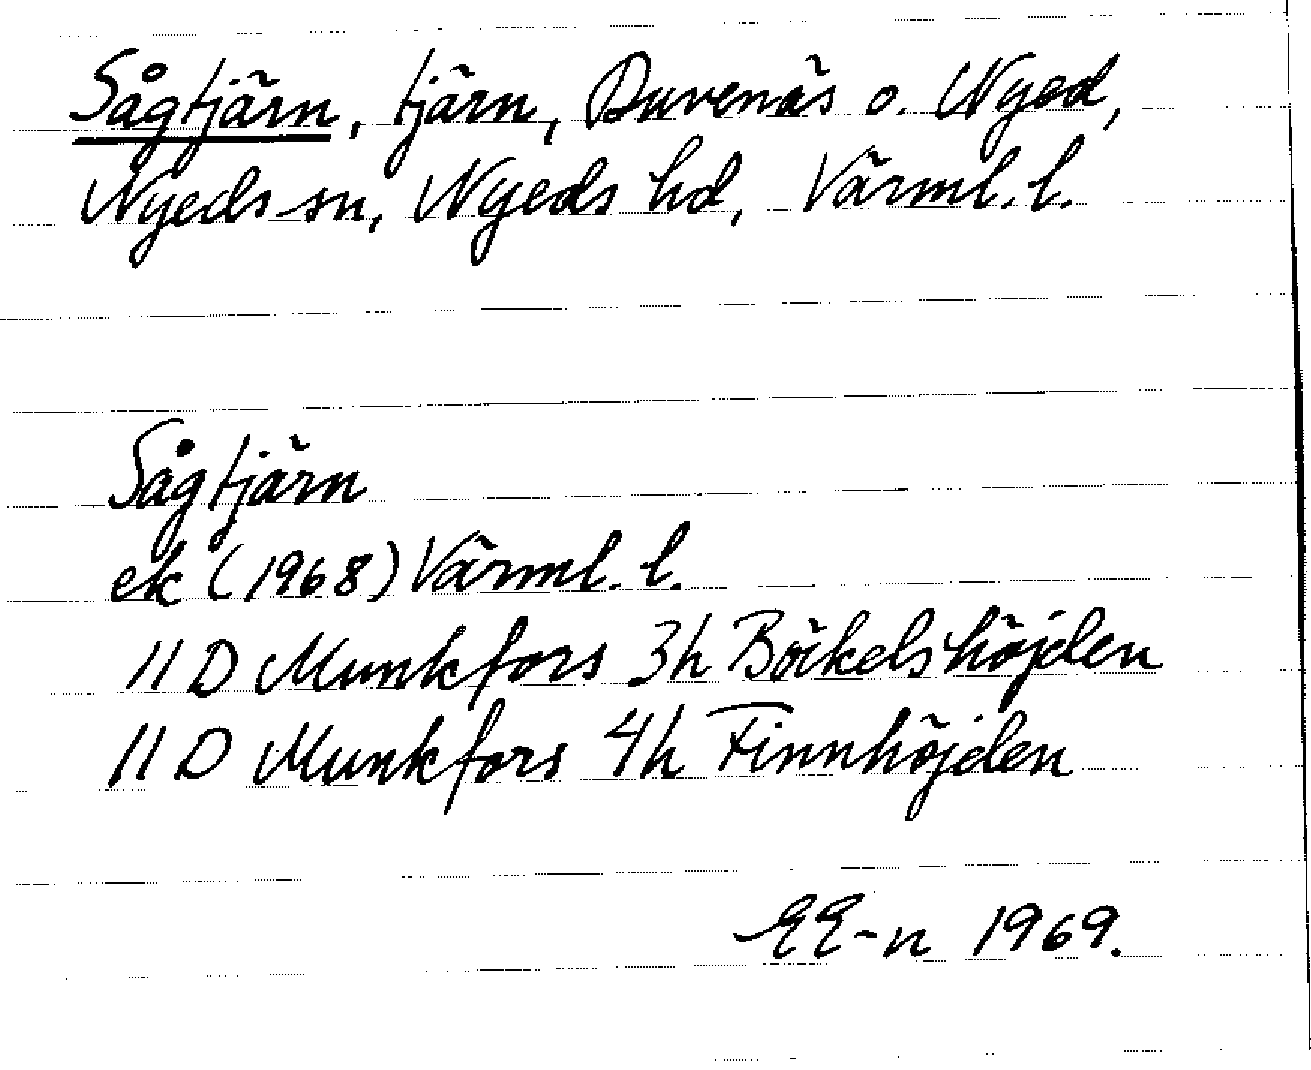 Sågtjärn, tjärn, Duvenäs o. Nyed,
Nyeds sn, Nyeds hd, Värml. l.
Sågtjärn
ek (1968) Värml. l.
11 D Munkfors 3h Bökelshöjden
11 D Munkfors 4h Finnhöjden
EE-n 1969.